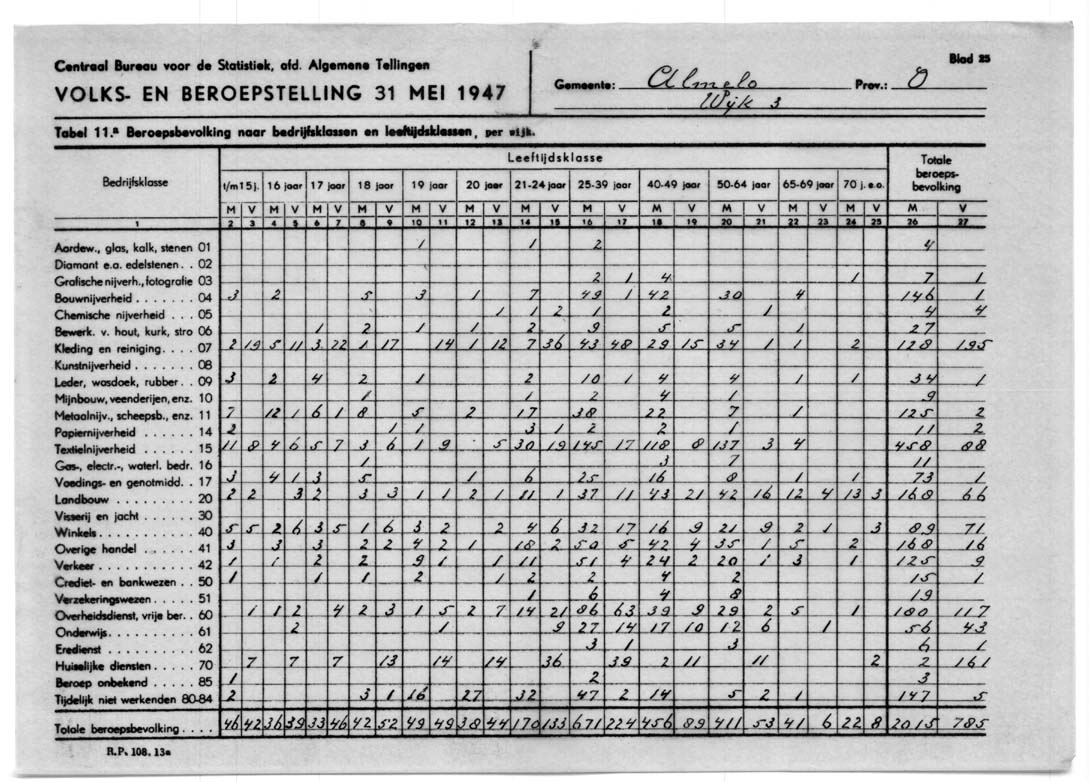 Centraal Bureau voor de Statistiek, afd. Algemene Tellingen
VOLKS- EN BEROEPSTELLING 31 MEI 1947
Gemeente: Almelo Prov.: O
Wijk 3
Blad 25
Tabel 11.a Beroepsbevolking naar bedrijfsklassen en leeftijdsklassen, per wijk.
Bedrijfsklasse Leeftijdsklasse Totale beroeps-bevolking
t/m 15 j. 16 jaar 17 jaar 18 jaar 19 jaar 20 jaar 21-24 jaar 25-39 jaar 40-49 jaar 50-64 jaar 65-69 jaar 70 j. e.o.
M V M V M V M V M V M V M V M V M V M V M V M V M V
1 2 3 4 5 6 7 8 9 10 11 12 13 14 15 16 17 18 19 20 21 22 23 24 25 26 27
Aardew., glas, kalk, stenen 01 1 1 2 4
Diamant e.a. edelstenen. . 02
Grafische nijverh., fotografie 03 2 1 4 1 7 1
Bouwnijverheid . . . . . . . 04 3 2 5 3 1 7 49 1 42 30 4 146 1
Chemische nijverheid . . . 05 1 1 2 1 2 1 4 4
Bewerk. v. hout, kurk, stro 06 1 2 1 1 2 9 5 5 1 27
Kleding en reiniging. . . . 07 2 19 5 11 3 22 1 17 14 1 12 7 36 43 48 29 15 34 1 1 2 128 195
Kunstnijverheid . . . . . . . 08
Leder, wasdoek, rubber. . 09 3 2 4 2 1 2 10 1 4 4 1 1 34 1
Mijnbouw, veenderijen, enz. 10 1 1 2 4 1 9
Metaalnijv., scheepsb., enz. 11 7 12 1 6 1 8 5 2 17 38 22 7 1 125 2
Papiernijverheid . . . . . . 14 2 1 1 3 1 2 2 1 11 2
Textielnijverheid . . . . . . 15 11 8 4 6 5 7 3 6 1 9 5 30 19 145 17 118 8 137 3 4 458 88
Gas-, electr.-, waterl. bedr. 16 1 3 7 11
Voedings- en genotmidd. . 17 3 4 1 3 5 1 6 25 16 8 1 73 1
Landbouw . . . . . . . . . . 20 2 2 3 2 3 3 1 1 2 1 11 1 37 11 43 21 42 16 12 4 13 3 168 66
Visserij en jacht . . . . . . 30
Winkels. . . . . . . . . . . . 40 5 5 2 6 3 5 1 6 3 2 2 4 6 32 17 16 9 21 9 2 1 3 89 71
Overige handel . . . . . . 41 3 3 3 2 2 4 2 1 18 2 50 5 42 4 35 1 5 2 168 16
Verkeer . . . . . . . . . . . 42 1 1 2 2 9 1 1 11 51 4 24 2 20 1 3 1 125 9
Crediet- en bankwezen . . 50 1 1 1 2 1 2 2 4 2 15 1
Verzekeringswezen. . . . . 51 1 6 4 8 19
Overheidsdienst, vrije ber. . 60 1 1 2 4 2 3 1 5 2 7 14 21 86 63 39 9 29 2 5 1 180 117
Onderwijs. . . . . . . . . . 61 2 1 9 27 14 17 10 12 6 1 56 43
Eredienst . . . . . . . . . . 62 3 1 3 6 1
Huiselijke diensten . . . . . 70 7 7 7 13 14 14 36 39 2 11 11 2 2 161
Beroep onbekend . . . . . 85 1 2 3
Tijdelijk niet werkenden 80-84 2 3 1 16 27 32 47 2 14 5 2 1 147 5
Totale beroepsbevolking . . . . 46 42 36 39 33 46 42 52 49 49 38 44 170 133 671 224 456 89 411 53 41 6 22 8 2015 785
R.P. 108. 13a